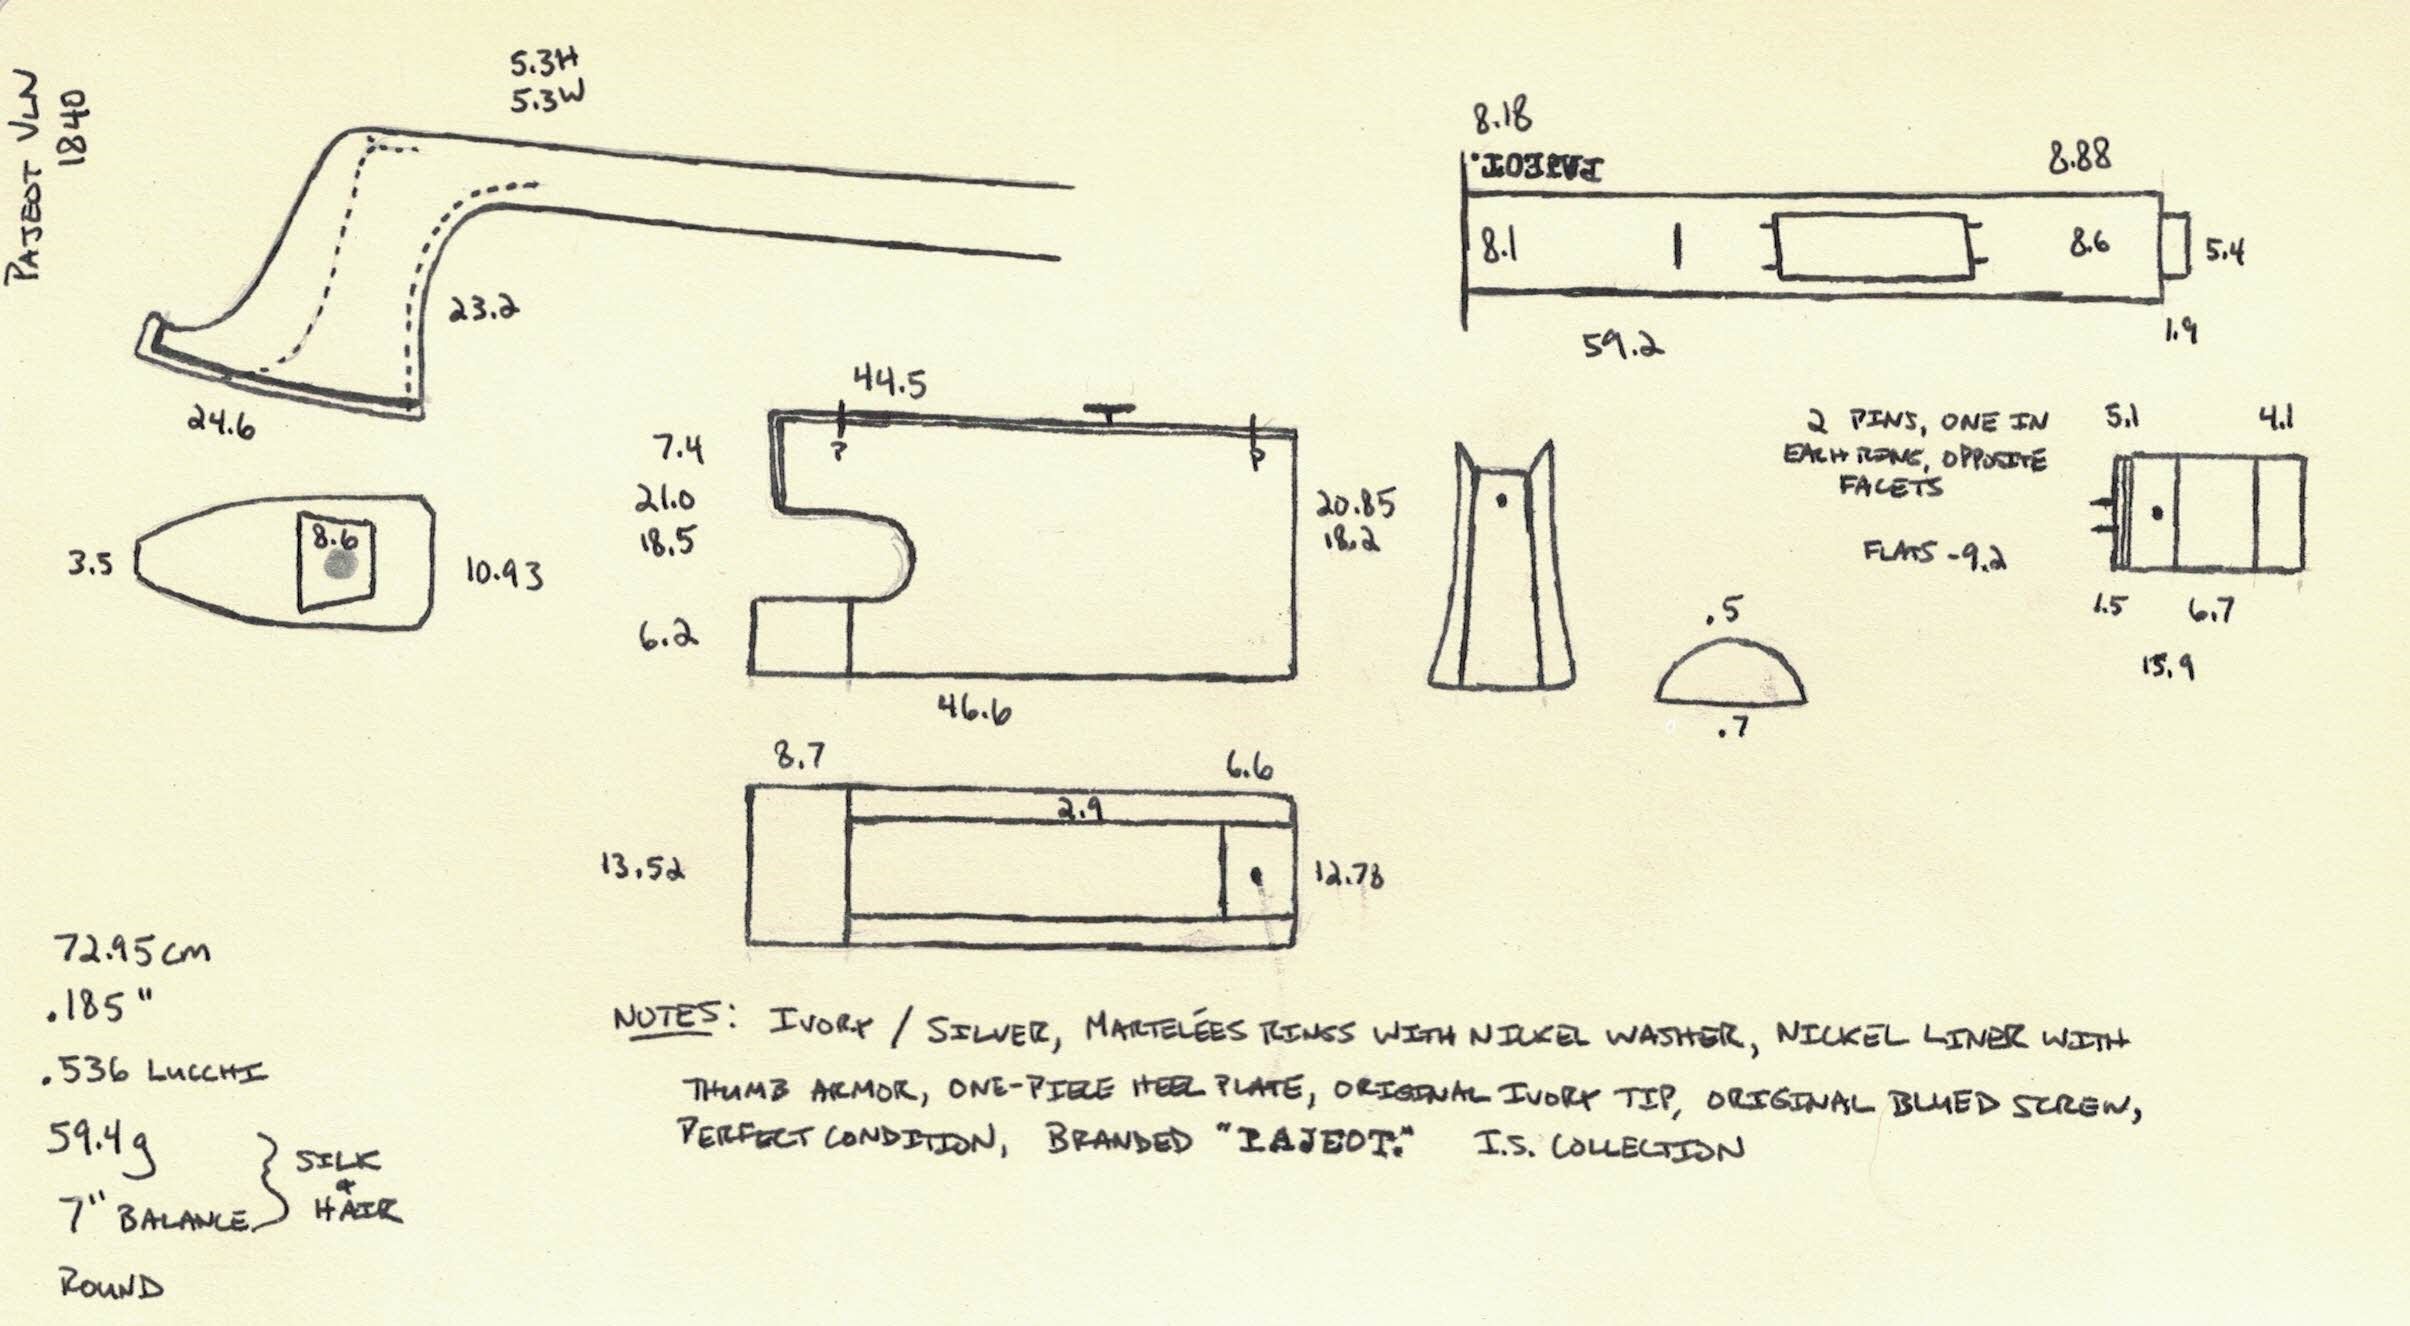 PAJEOT VLN
1840
5.3H
5.3W
23.2
24.6
3.5
8.6
10.93
8.18
PAJEOT.
8.88
8.1
8.6
5.4
59.2
1.9
44.5
7.4
21.0
18.5
6.2
P
P
20.85
18.2
46.6
2 PINS, ONE IN
EACH RING, OPPOSITE
FACETS
FLATS - 9.2
5.1
4.1
1.5
6.7
15.9
.5
.7
8.7
6.6
2.9
13.52
12.78
72.95cm
.185"
.536 LUCCHI
59.4g
7" BALANCE
SILK
&
HAIR
ROUND
NOTES: IVORY / SILVER, MARTELÉES RINGS WITH NICKEL WASHER, NICKEL LINER WITH
THUMB ARMOR, ONE-PIECE HEEL PLATE, ORIGINAL IVORY TIP, ORIGINAL BLUED SCREW,
PERFECT CONDITION, BRANDED "PAJEOT." I.S. COLLECTION